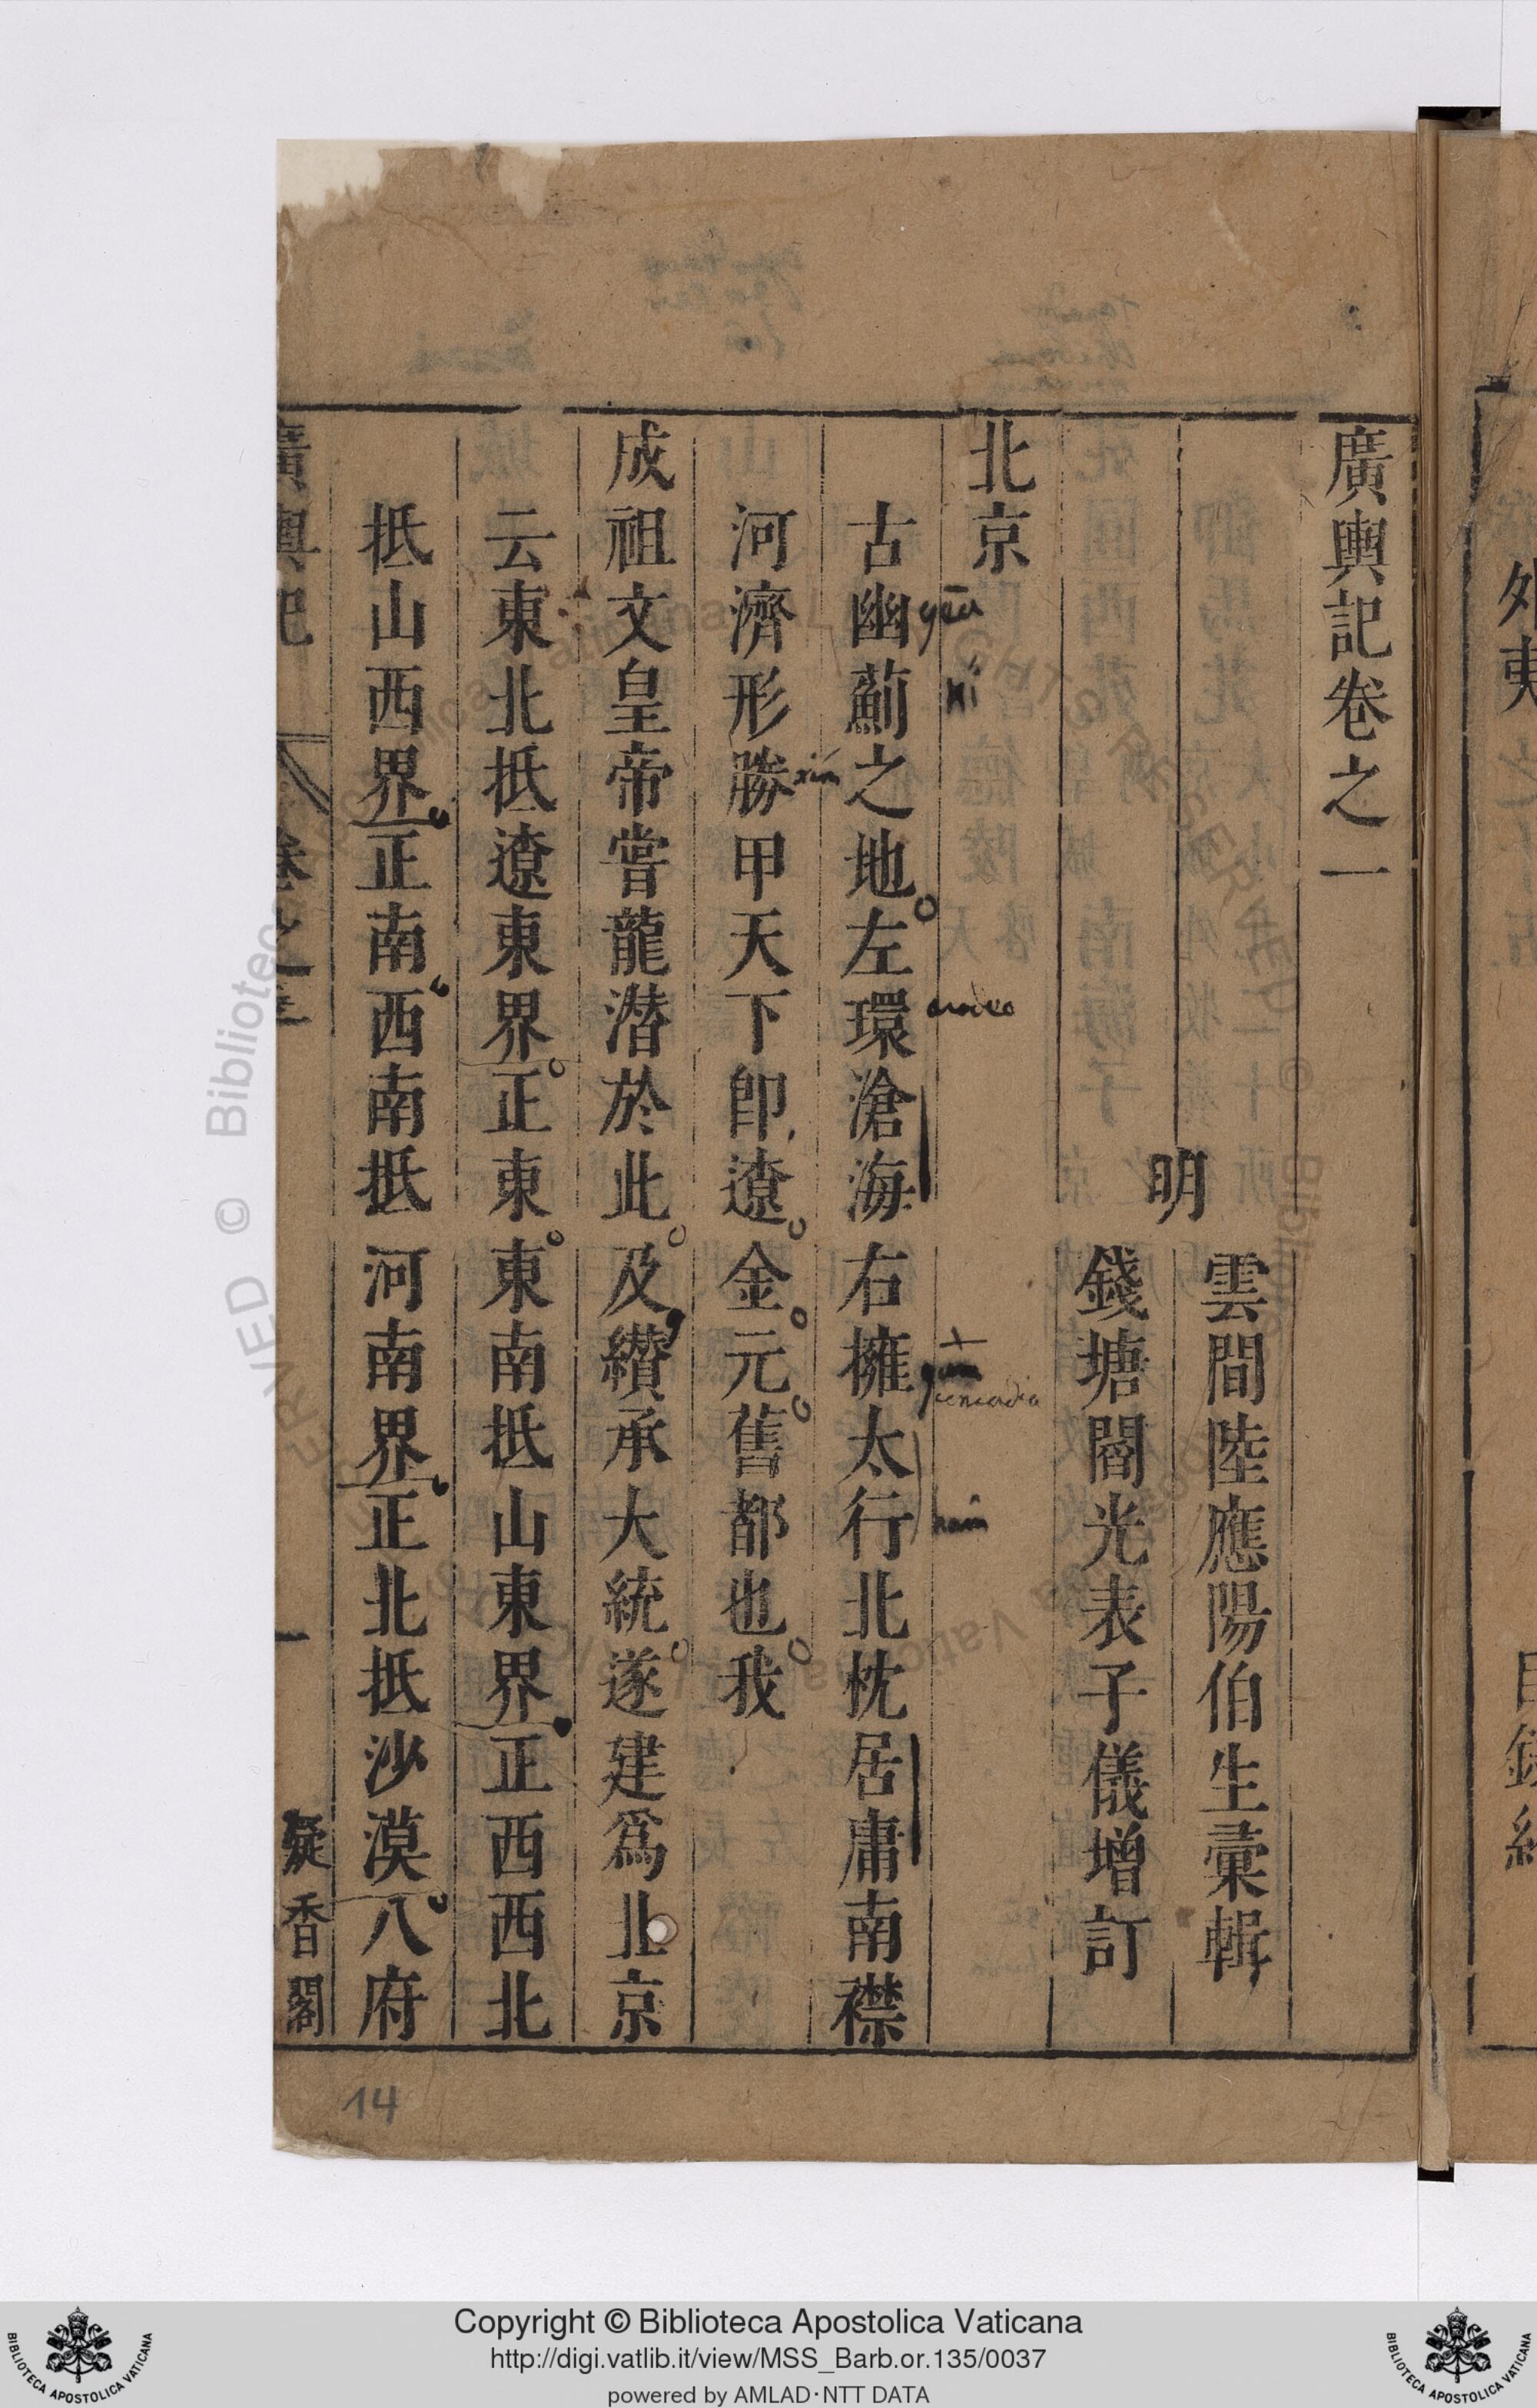 廣輿記卷之一
雲間陸應陽伯生彙輯
明
錢塘閻光表子儀增訂
北京
古幽薊之地左環滄海右擁太行北枕居庸南襟
yēu
kí
xím
hâm
河濟形勝甲天下即遼金元舊都也我
成祖文皇帝嘗龍潛於此及纘承大統遂建爲北京
云東北抵遼東界正東東南抵山東界正西西北
抵山西界正南西南抵河南界正北抵沙漠八府
廣輿記
卷之一
一
凝香閣
14
Copyright © Biblioteca Apostolica Vaticana
http://digi.vatlib.it/view/MSS_Barb.or.135/0037
powered by AMLAD·NTT DATA
BIBLIOTECA APOSTOLICA VATICANA
BIBLIOTECA APOSTOLICA VATICANA